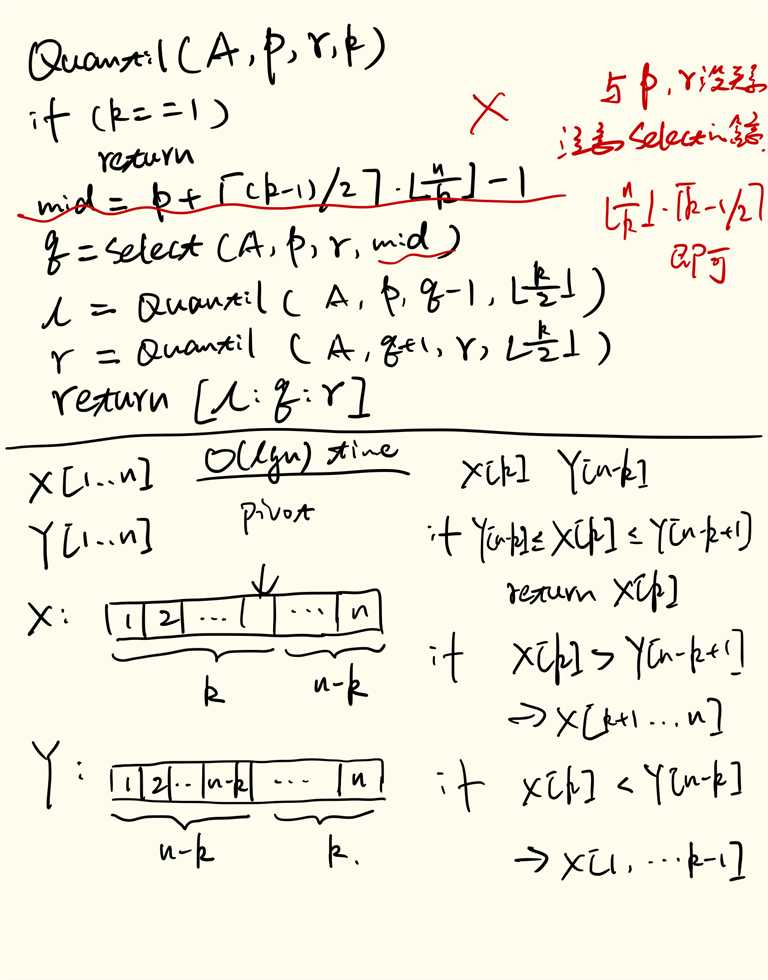 Quantil(A,p,r,k)
if (k==1)
return
mid = p+⌈(k-1)/2⌉·⌊n/k⌋-1
q = select (A, p, r, mid)
l = Quantil( A, p, q-1, ⌊k/2⌋)
r = Quantil ( A, q+1, r, ⌊k/2⌋)
return [l:q:r]
×
与 p, r 没关系
注意 Selectin 含意.
⌊n/k⌋·⌈k-1/2⌉
即可
X[1..n]
Y[1..n]
O(lgn) time
pivot
X:
1 2 ... ... n
k n-k
Y:
1 2 .. n-k ... n
n-k k.
X[k] Y[n-k]
if Y[n-k] ≤ X[k] ≤ Y[n-k+1]
return X[k]
if X[k] > Y[n-k+1]
→ X[k+1 ... n]
if X[k] < Y[n-k]
→ X[1, ... k-1]